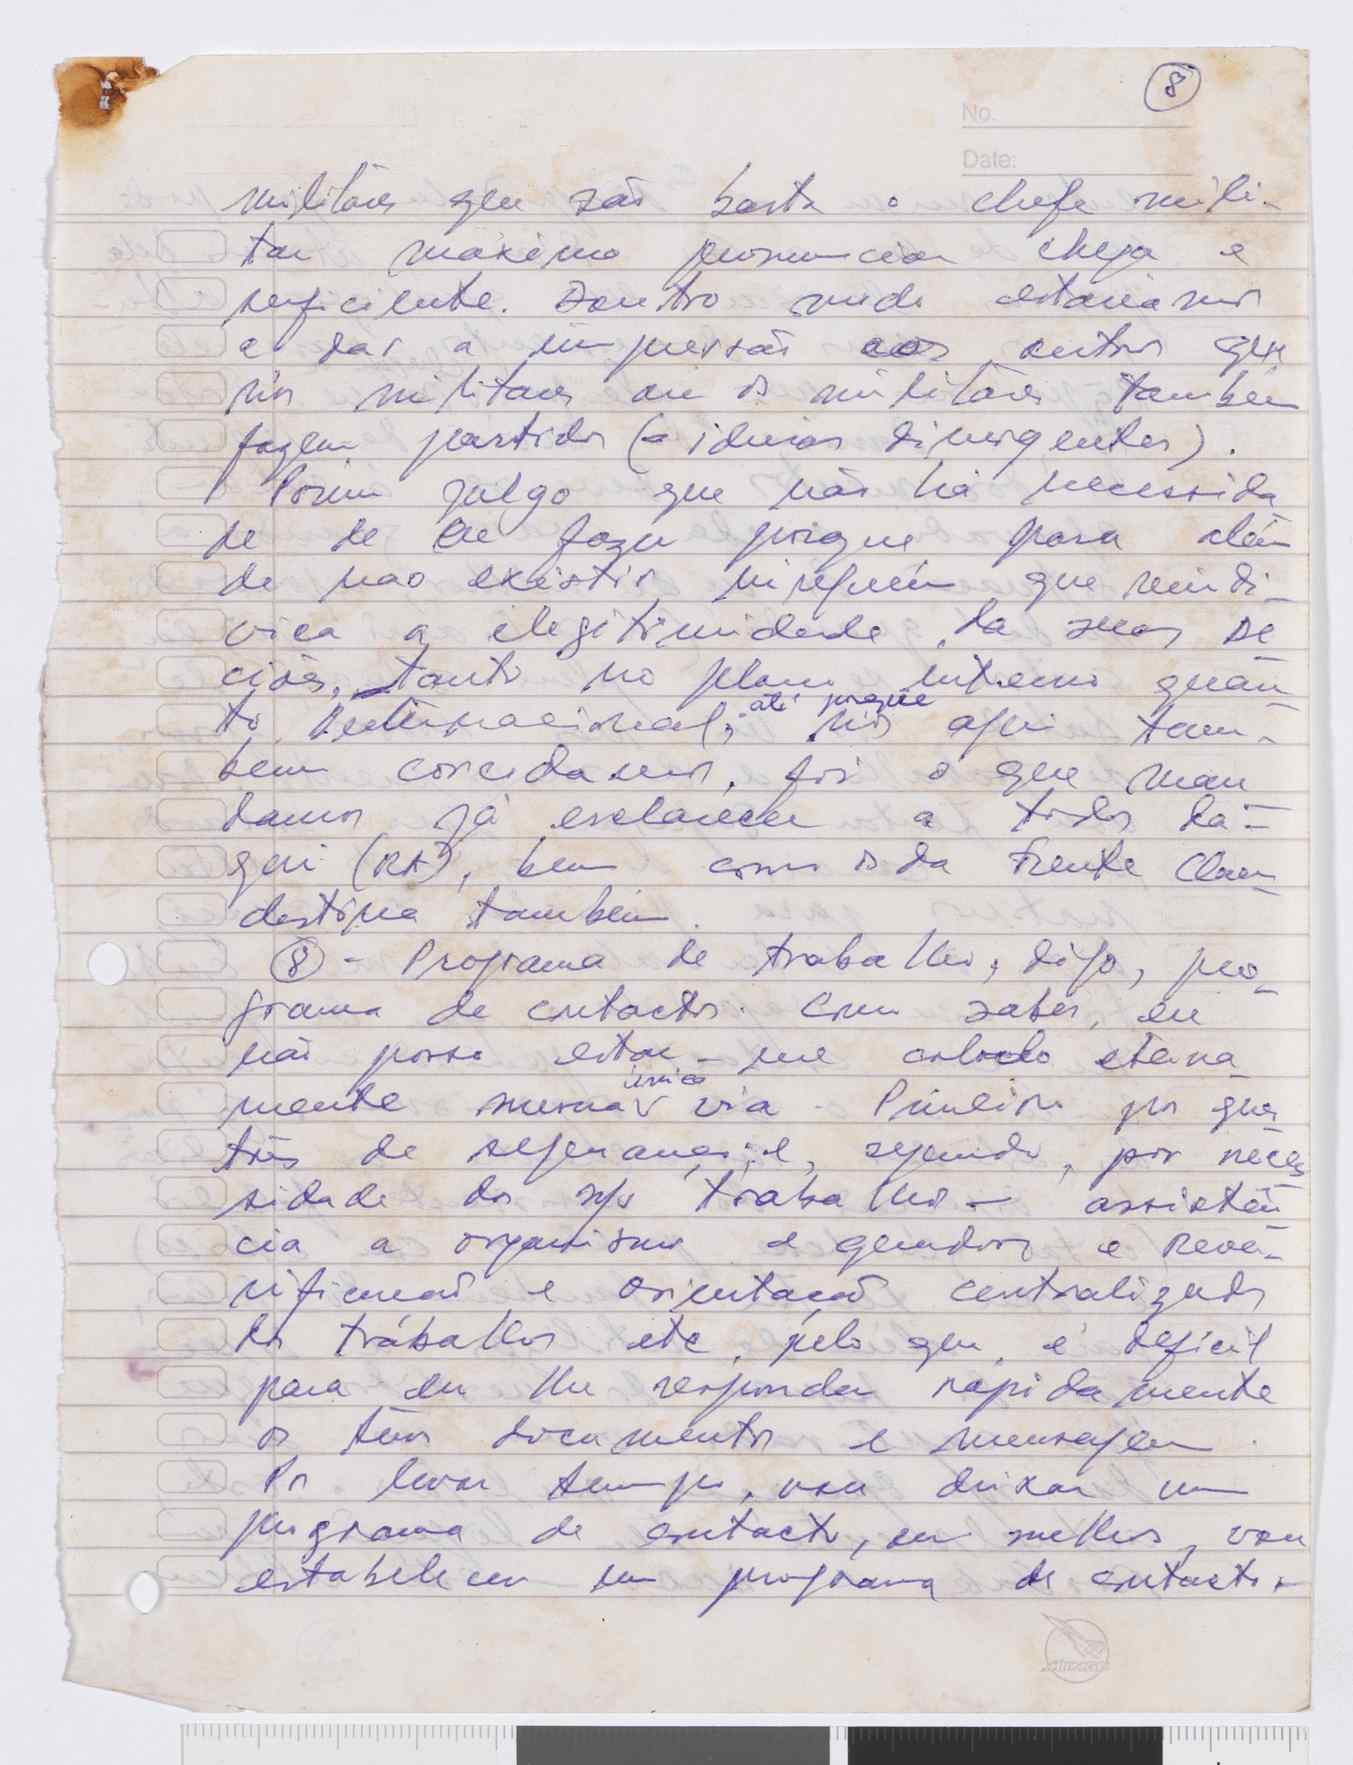 8
No.
Date:
militares que são basta o chefe mili-
tar máximo pronunciar chega e
suficiente. Doutro modo estaríamos
a dar a impressão aos outros que
nós militares ou os militares também
fazem partidos (e ideias divergentes).
Porém julgo que não há necessida
de de o fazer porque para além
de nao existir ninguém que reindi-
vica a elegitimidade da suas de
ciões, tanto no plano interno quan
to internacional; até porque nós aqui tam-
bém concordamos, foi o que man
damos já esclarecer a todos da-
qui (RA), bem como os da Frente Clan
destina também.
8 - Programa de trabalho, digo, pro-
grama de contactos. Como sabes, eu
não posso estar-me colocdo eterna
mente numa única via. Primeiro por ques
tões de segurança; e, segundo, por neces
sidade do n/ trabalho - assistên
cia a organismo e quadros e
e orientação centralizado
dos trabalhos etc, pelo que, é defícil
para eu lhe responder rapidamente
os teus documentos e mensagem.
Por levar tempo, vou deixar um
programa de contacto, ou melhor, vou
estabelecer um programa de contacto.